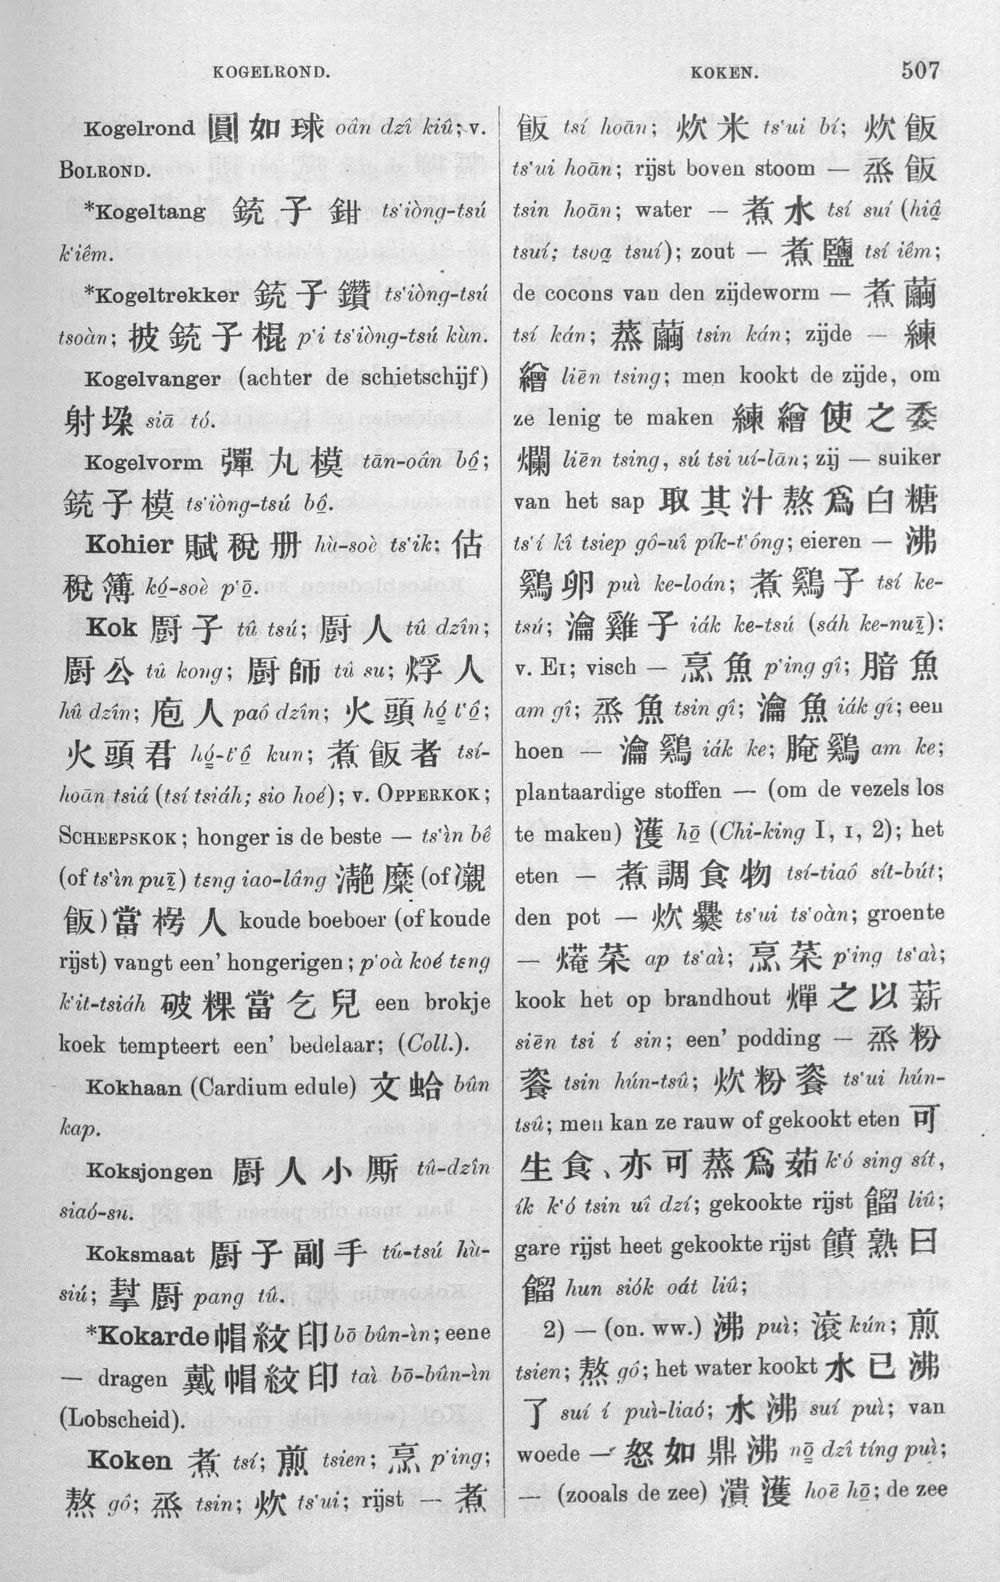 KOGELROND.
KOKEN.
507
Kogelrond 圓如球 oân dzî kiû; v.
BOLROND.
*Kogeltang 銃子鉗 ts'iòng-tsú
k'iêm.
*Kogeltrekker 銃子鑽 ts'iòng-tsú
tsoàn; 披銃子棍 p'i ts'iòng-tsú kùn.
Kogelvanger (achter de schietschijf)
射垛 siā tó.
Kogelvorm 彈丸模 tān-oân bô̤;
銃子模 ts'iòng-tsú bô̤.
Kohier 賦稅册 hù-soè ts'ik; 估
稅簿 kó̤-soè p'ō̤.
Kok 厨子 tû tsú; 厨人 tû dzîn;
厨公 tû kong; 厨師 tû su; 烰人
hû dzîn; 庖人 paô dzîn; 火頭 hó̤ t'ô̤;
火頭君 hó̤-t'ô̤ kun; 煮飯者 tsí-
hoān tsiá (tsí tsiáh; sio hoé); v. OPPERKOK;
SCHEEPSKOK; honger is de beste — ts'ìn bê
(of ts'ìn puī) tɛng iao-lâng 糜 (of
飯) 當 人 koude boeboer (of koude
rijst) vangt een' hongerigen; p'oà koé tɛng
k'it-tsiáh 破粿當乞兒 een brokje
koek tempteert een' bedelaar; (Coll.).
Kokhaan (Cardium edule) 文蛤 bûn
kap.
Koksjongen 厨人小厮 tû-dzîn
siaó-su.
Koksmaat 厨子副手 tú-tsú hù-
siú; 幫厨 pang tû.
*Kokarde 帽紋印 bō bûn-ìn; eene
— dragen 戴帽紋印 taì bō-bûn-ìn
(Lobscheid).
Koken 煮 tsí; 煎 tsien; 烹 p'ing;
熬 gô; 烝 tsin; 炊 ts'ui; rijst — 煮
飯 tsí hoān; 炊米 ts'ui bí; 炊飯
ts'ui hoān; rijst boven stoom — 烝飯
tsin hoān; water — 煮水 tsí suí (hiâ
tsuí; tsoa tsuí); zout — 煮鹽 tsí iêm;
de cocons van den zijdeworm — 煮繭
tsí kán; 蒸繭 tsin kán; zijde — 練
繒 liēn tsing; men kookt de zijde, om
ze lenig te maken 練繒使之委
爛 liēn tsing, sú tsi uí-lān; zij — suiker
van het sap 取其汁熬爲白糖
ts'í kî tsiep gô-uî pík-t'óng; eieren — 沸
鷄卵 puì ke-loán; 煮鷄子 tsí ke-
tsú; 瀹雞子 iák ke-tsú (sáh ke-nuī):
v. EI; visch — 烹魚 p'ing gî; 腤魚
am gî; 烝魚 tsin gî; 瀹魚 iák gî; een
hoen — 瀹鷄 iák ke; 腌鷄 am ke;
plantaardige stoffen — (om de vezels los
te maken) 濩 hō̤ (Chi-king I, I, 2); het
eten — 煮調食物 tsí-tiaô sít-bút;
den pot — 炊爨 ts'ui ts'oàn; groente
— 菜 ap ts'aì; 烹菜 p'ing ts'aì;
kook het op brandhout 燀之以薪
siēn tsi í sin; een' podding — 烝粉
餈 tsin hún-tsû; 炊粉餈 ts'ui hún-
tsû; men kan ze rauw of gekookt eten 可
生食、亦可蒸爲茹 k'ó sing sít,
ík k'ó tsin uî dzí; gekookte rijst 餾 liû;
gare rijst heet gekookte rijst 饙熟曰
餾 hun siók oát liû;
2) — (on. ww.) 沸 puì; 滾 kún; 煎
tsien; 熬 gô; het water kookt 水已沸
了 suí í puì-liaó; 水沸 suí puì; van
woede — 怒如鼎沸 nō̤ dzî tíng puì;
— (zooals de zee) 濆濩 hoē hō̤; de zee